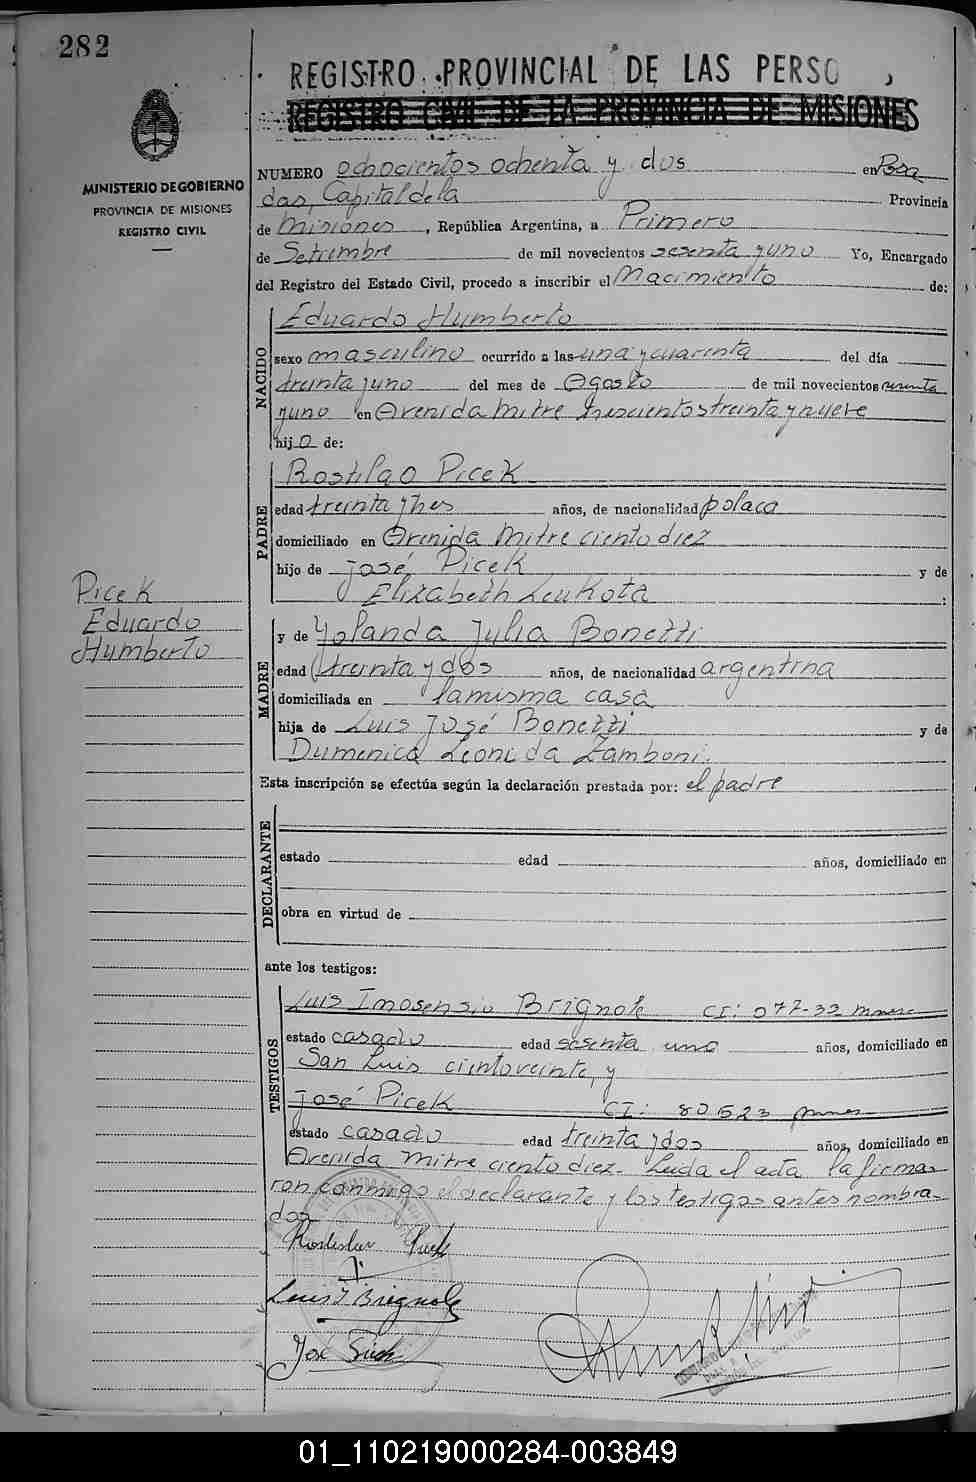 282
REGISTRO PROVINCIAL DE LAS PERSO
REGISTRO CIVIL DE LA PROVINCIA DE MISIONES
MINISTERIO DE GOBIERNO
PROVINCIA DE MISIONES
REGISTRO CIVIL
NUMERO ochocientos ochenta y dos en Posa
das, Capital de la Provincia
de Misiones, República Argentina, a Primero
de Setiembre de mil novecientos sesenta y uno Yo, Encargado
del Registro del Estado Civil, procedo a inscribir el Nacimiento de:
NACIDO
Eduardo Humberto
sexo masculino ocurrido a las una y cuarenta del día
treinta y uno del mes de Agosto de mil novecientos sesenta
y uno en Avenida Mitre trescientos treinta y nueve
hijo de:
PADRE
Rostilao Picek
edad treinta y tres años, de nacionalidad polaca
domiciliado en Avenida Mitre ciento diez
hijo de José Picek y de
Elizabeth Leukota :
Picek
Eduardo
Humberto
MADRE
y de Yolanda Julia Bonetti
edad treinta y dos años, de nacionalidad argentina
domiciliada en la misma casa
hija de Luis José Bonezzi y de
Dumenica Leonida Zamboni.
Esta inscripción se efectúa según la declaración prestada por: el padre
DECLARANTE
estado edad años, domiciliado en
obra en virtud de
ante los testigos:
TESTIGOS
Luis Inosensio Brignole CI: 077-33
estado casado edad sesenta uno años, domiciliado en
San Luis ciento veinte, y
José Picek CI: 80523
estado casado edad treinta y dos años, domiciliado en
Avenida Mitre ciento diez- Leida el acta la firma-
ron conmigo el declarante y los testigos antes nombra-
dos
Rostislav Picek
Luis I Brignole
José Picek
01_110219000284-003849